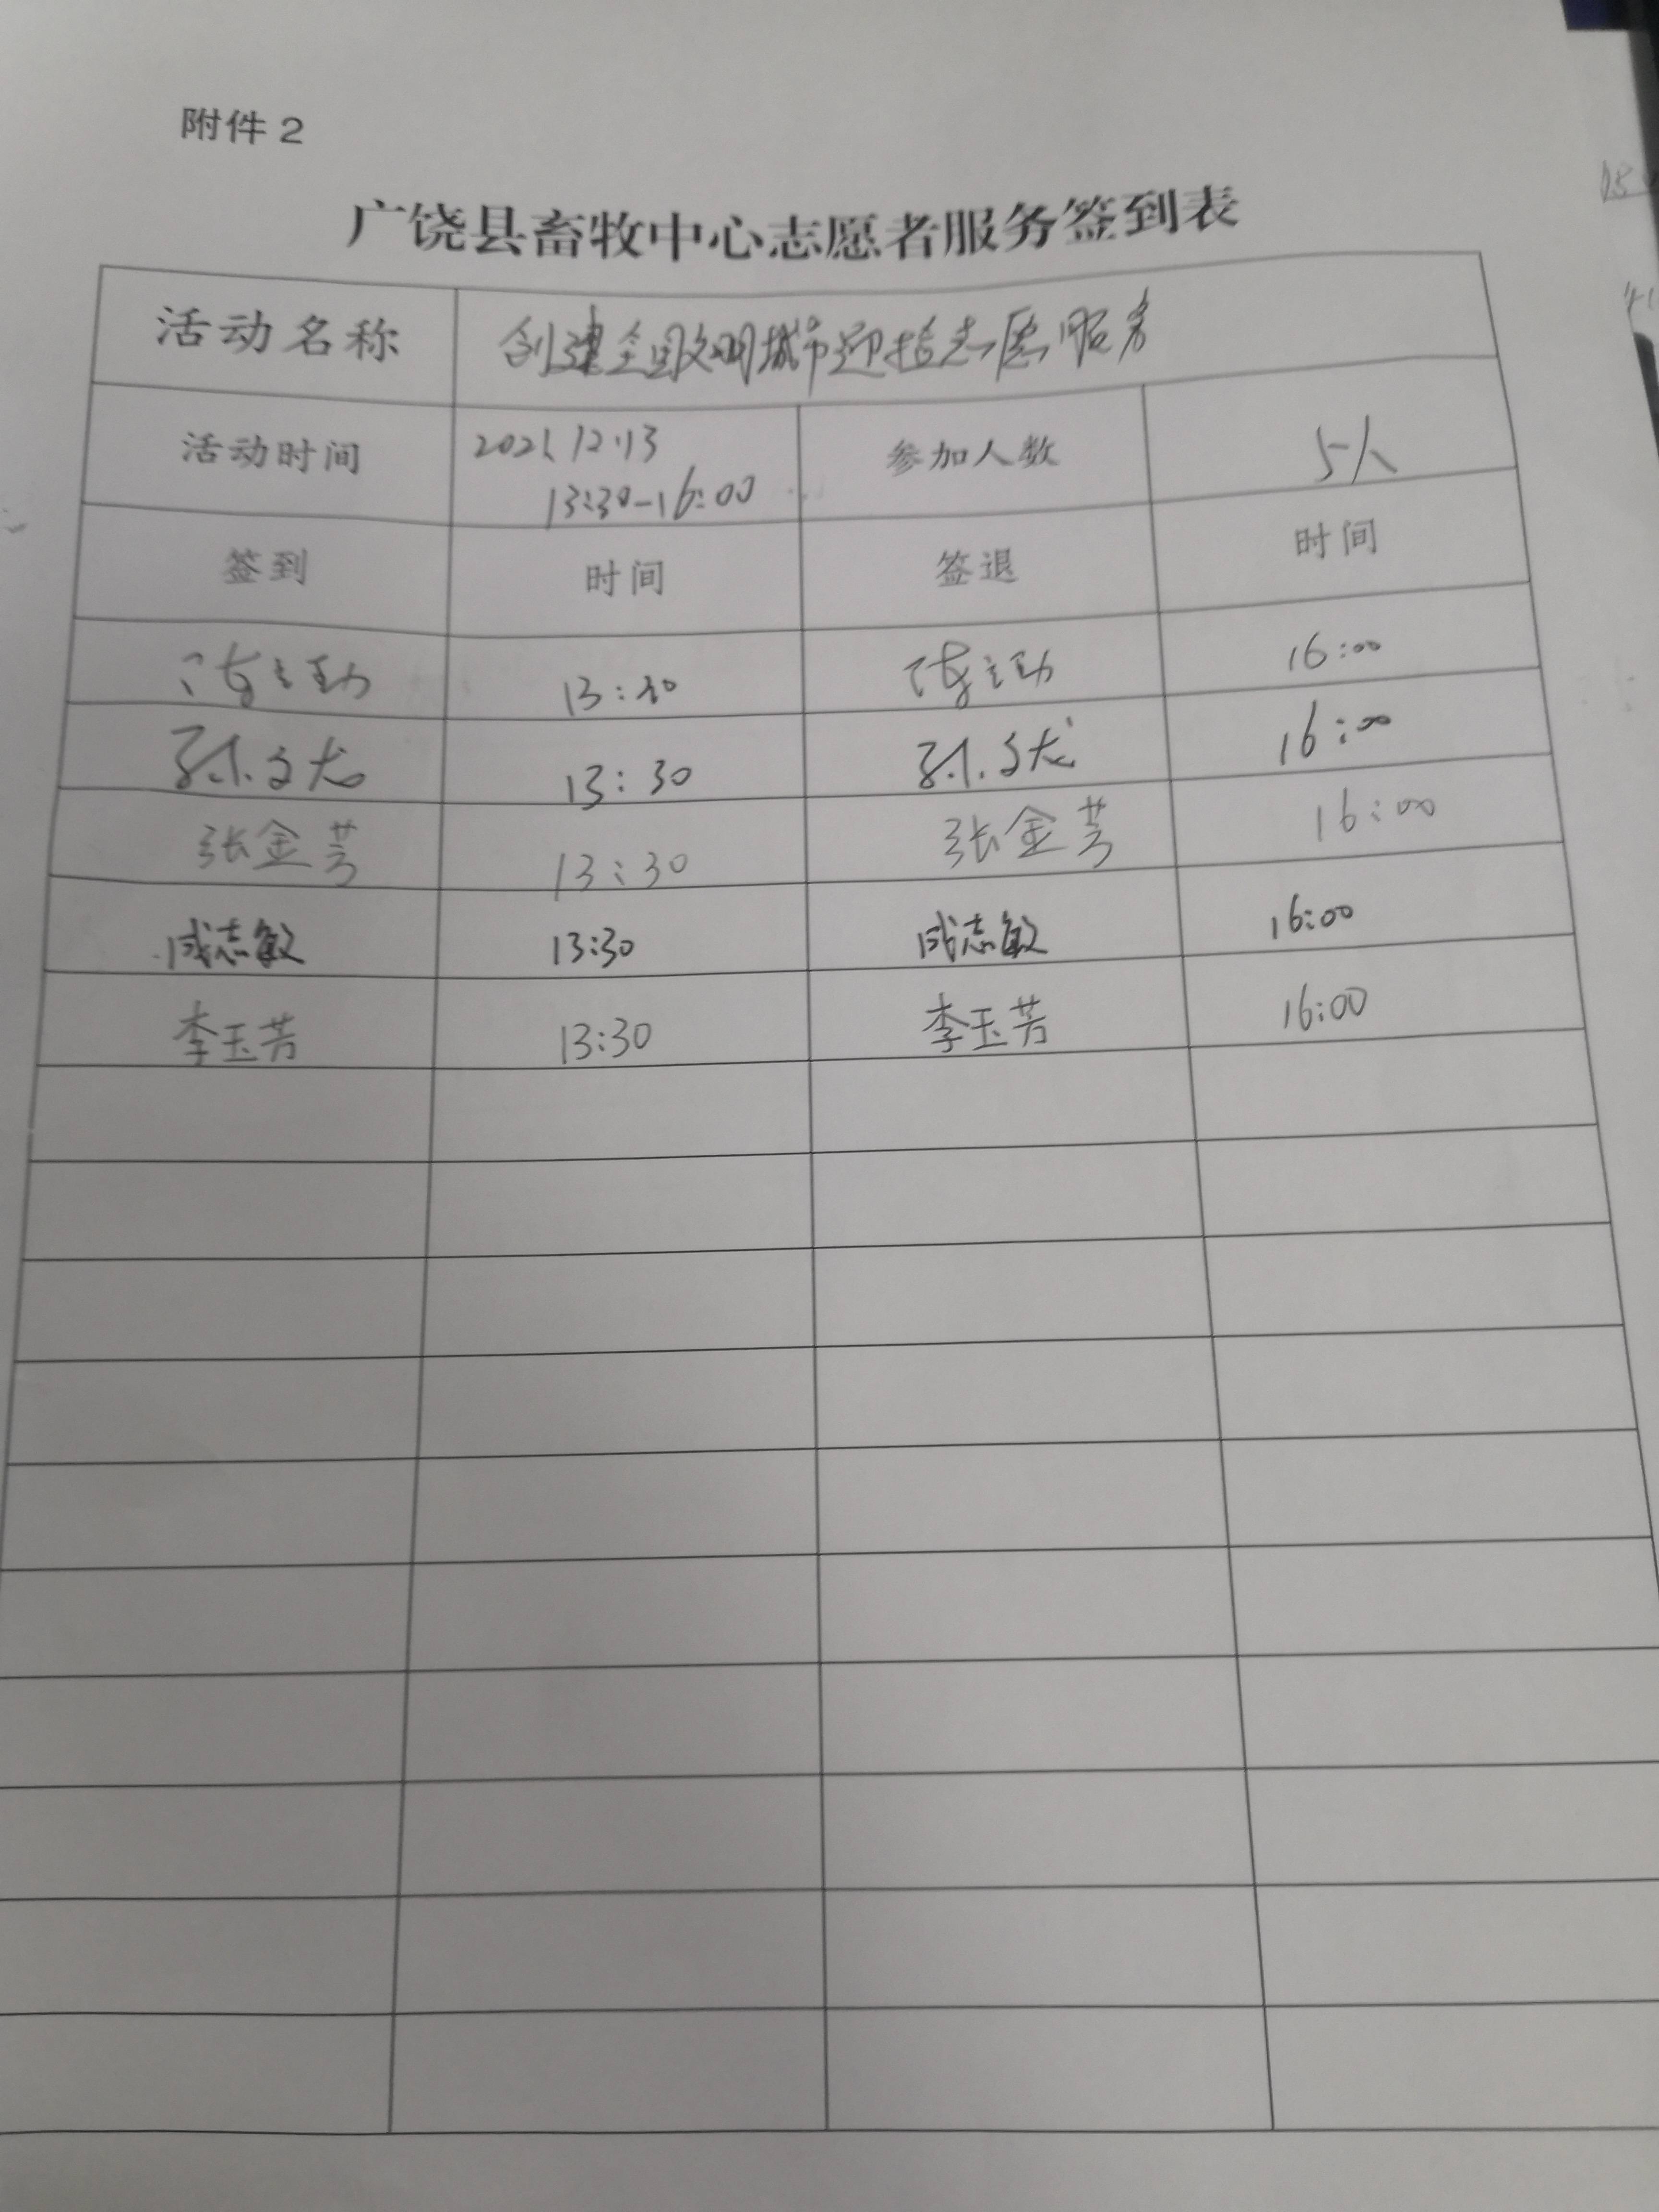 附件2
广饶县畜牧中心志愿者服务签到表
活动名称 创建全国文明城市迎检志愿服务
活动时间 2021.12.13 13:30-16:00 参加人数 5人
签到 时间 签退 时间
13:30 16:00
13:30 16:00
张金芳 13:30 张金芳 16:00
成志敏 13:30 成志敏 16:00
李玉芳 13:30 李玉芳 16:00